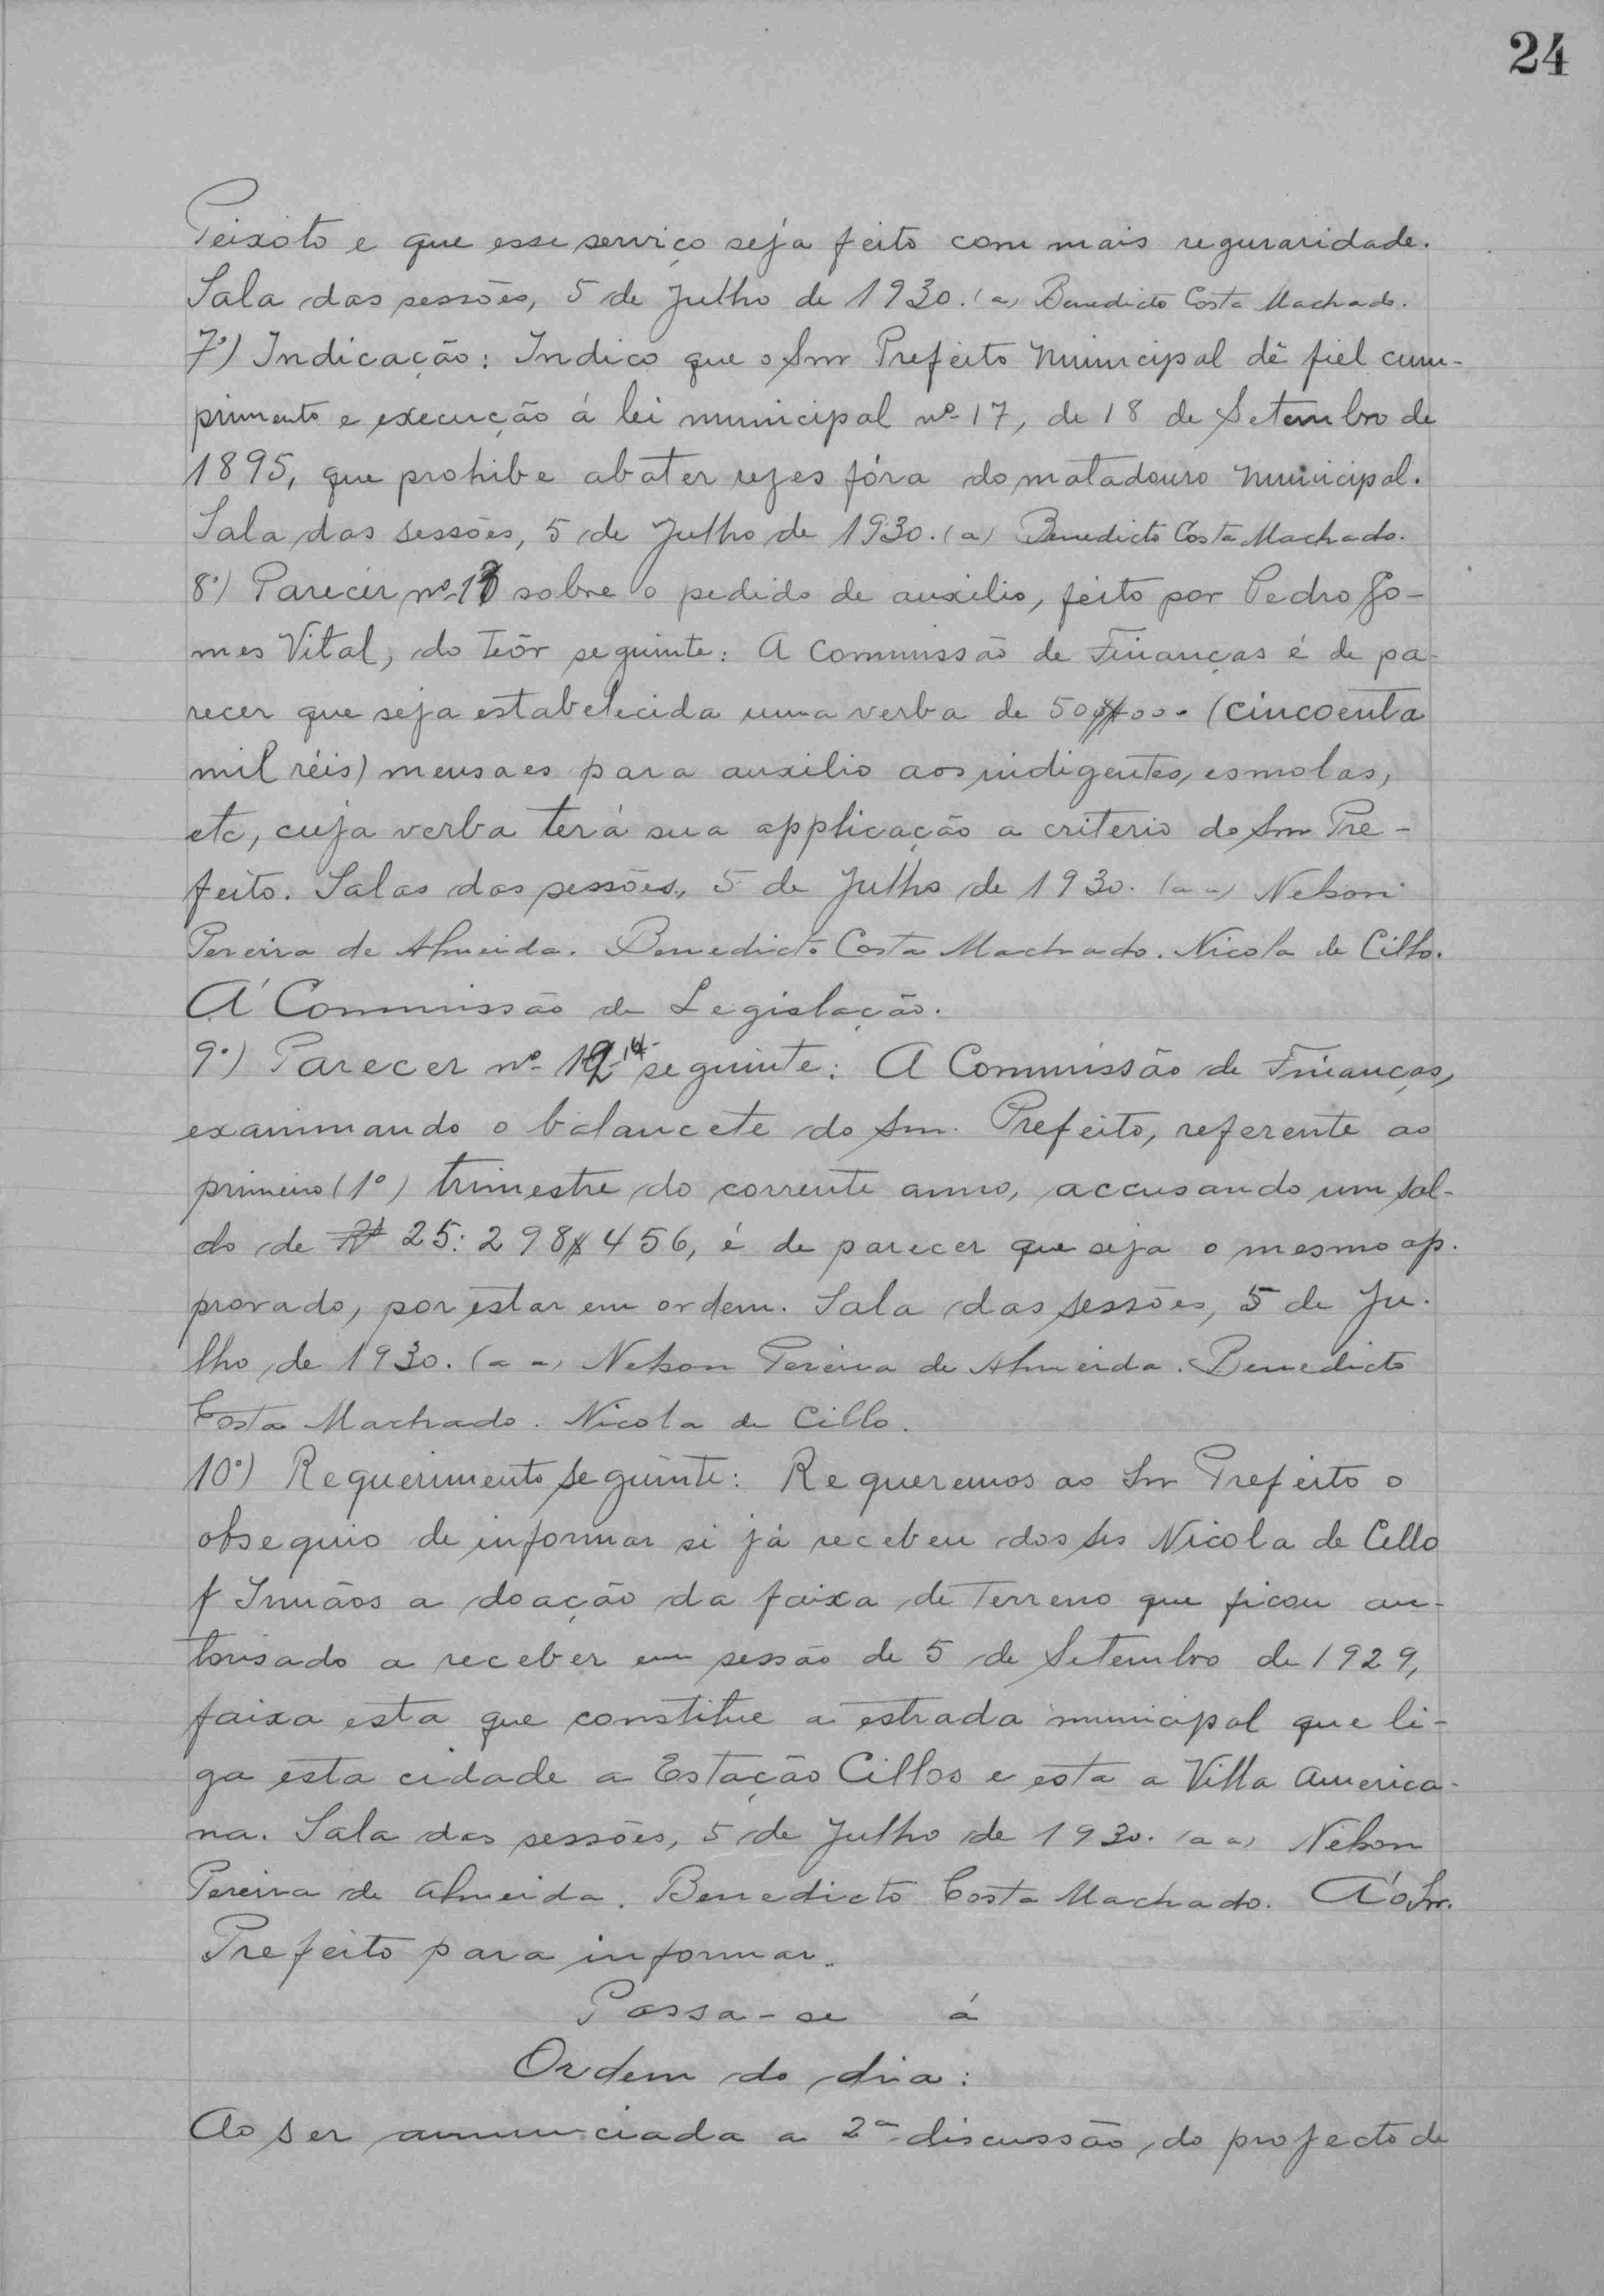 24
Peixoto e que esse serviço seja feito com mais reguraridade.
Sala das sessões, 5 de Julho de 1930. (a) Benedicto Costa Machado.
7º) Indicação: Indico que o Snr Prefeito Municipal dê fiel cum-
primento e execução á lei municipal nº 17, de 18 de Setembro de
1895, que prohibe abater rezes fóra do matadouro Municipal.
Sala das sessões, 5 de Julho de 1930. (a) Benedicto Costa Machado.
8º) Parecer nº sobre o pedido de auxilio, feito por Pedro Go-
mes Vital, do teôr seguinte: A Commissão de Finanças é de pa-
recer que seja estabelecida uma verba de 50$000 (cincoenta
mil réis) mensaes para auxilio aos indigentes, esmolas,
etc, cuja verba terá sua applicação a criterio do Snr Pre-
feito. Salas das sessões, 5 de Julho de 1930. (a a) Nelson
Pereira de Almeida. Benedicto Costa Machado. Nicola de Cillo.
Á Commissão de Legislação.
9º) Parecer nº 14 seguinte: A Commissão de Finanças,
examinando o balancete do Snr. Prefeito, referente ao
primeiro (1º) trimestre do corrente anno, accusando um sal-
do de Rs 25:298$456, é de parecer que seja o mesmo ap-
provado, por estar em ordem. Sala das sessões, 5 de Ju-
lho de 1930. (a a) Nelson Pereira de Almeida. Benedicto
Costa Machado. Nicola de Cillo.
10º) Requerimento seguinte: Requeremos ao Snr Prefeito o
obsequio de informar si já recebeu dos srs Nicola de Cillo
& Irmãos a doação da faixa de terreno que ficou au-
torisado a receber em sessão de 5 de Setembro de 1929,
faixa esta que constitue a estrada municipal que li-
ga esta cidade a Estação Cillos e esta a Villa America-
na. Sala das sessões, 5 de Julho de 1930. (a a) Nelson
Pereira de Almeida. Benedicto Costa Machado. Á o Snr.
Prefeito para informar.
Passa-se á
Ordem do dia:
Ao ser annunciada a 2ª discussão do projecto de